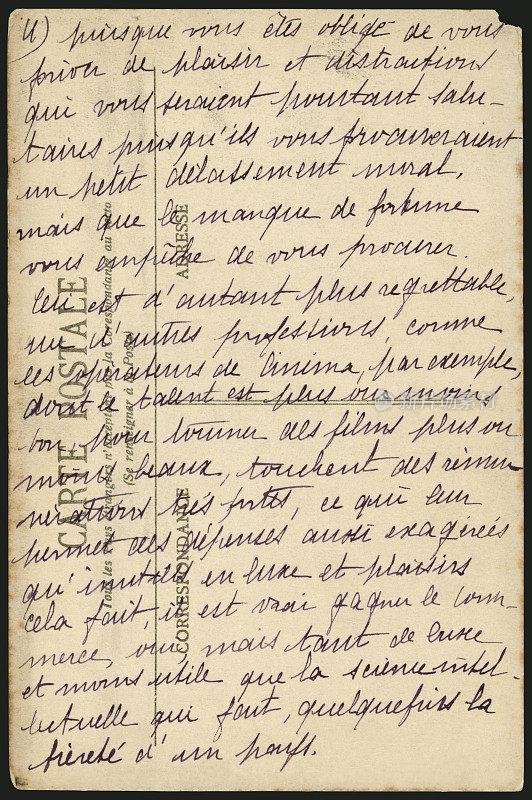 4) puisque vous êtes obligé de vous
priver de plaisir et distractions
qui vous seraient pourtant salu-
taires puisqu'ils vous procureraient
un petit délassement moral,
mais que le manque de fortune
vous empêche de vous procurer.
Ceci est d'autant plus regrettable,
que d'autres professions, comme
les opérateurs de Cinéma, par exemple,
dont le talent est plus ou moins
bon, pour tourner des films plus ou
moins beaux, touchent des rému-
nérations très fortes, ce qui leur
permet des dépenses aussi exagérées
qu'inutiles en luxe et plaisirs
Cela fait, il est vrai gagner le com-
merce, oui, mais tant de luxe
et moins utile que la science intel-
lectuelle qui fait, quelquefois la
fièreté d'un pays.
CARTE POSTALE
Tous les Pays étrangers n'acceptent pas la Correspondance au recto
(Se renseigner à la Poste)
CORRESPONDANCE
ADRESSE